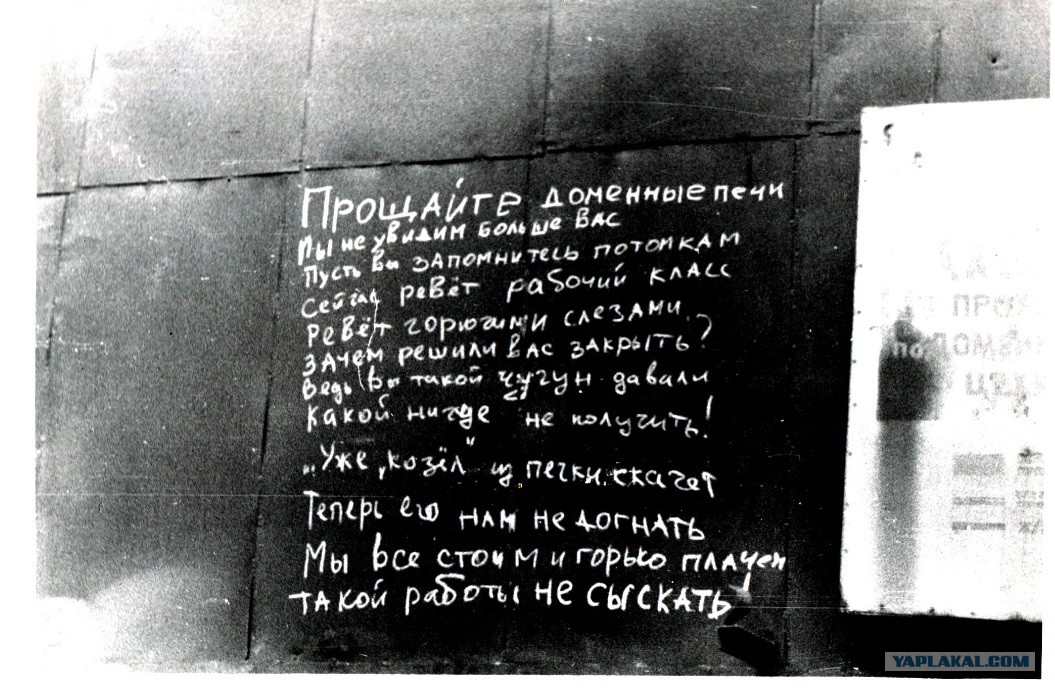 Прощайте доменные печи
Мы не увидим больше вас
Пусть вы запомнитесь потомкам
Сейчас ревёт рабочий класс
Ревёт горючими слезами,
Зачем решили вас закрыть?
Ведь вы такой чугун давали
Какой нигде не получить!
„Уже „козёл" из печки скачет
Теперь его нам не догнать
Мы все стоим и горько плачем
Такой работы не сыскать!
по ДОМЕН
YAPLAKAL.COM